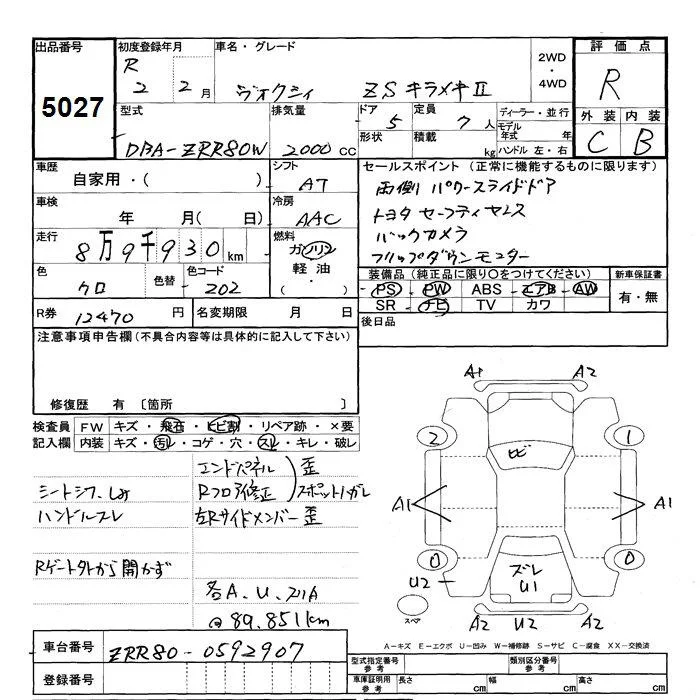 出品番号
5027
初度登録年月
R 2 2月
車名・グレード
ヴォクシィ ZSキラメキⅡ
2WD・4WD
評価点
R
外装 内装
C B
型式
DBA-ZRR80W
排気量
2000cc
ドア 5
定員 7人
形状
積載 kg
ディーラー・並行
モデル年式 年
ハンドル 左・右
車歴
自家用・( )
シフト
AT
車検
年 月( 日)
冷房
AAC
走行
8万9千930km
燃料
ガソリン
軽油・( )
色
クロ
色替
色コード
202
R券 12470円
名変期限 月 日
セールスポイント(正常に機能するものに限ります)
両側パワースライドドア
トヨタセーフティセンス
バックカメラ
フリップダウンモニター
装備品(純正品に限り○をつけてください)
PS PW ABS エアB AW
SR ナビ TV カワ
新車保証書
有・無
後日品
注意事項申告欄(不具合内容等は具体的に記入して下さい)
修復歴 有 〔箇所
検査員記入欄
FW キズ・飛石・トビ割・リペア跡・×要
内装 キズ・汚レ・コゲ・穴・スレ・キレ・破レ
エンドパネル
Rフロア修正
歪
スポットハガレ
左Rサイドメンバー歪
シートシワ、しみ
ハンドルスレ
Rゲート外から開かず
各A.U.
@89.851km
A1 A2
2 1
ヒビ
A1 A1
0 0
ズレ
U1
U2
スペア
A2 U2 A2
A-キズ E-エクボ U-凹み W-補修跡 S-サビ C-腐食 XX-交換済
車台番号
ZRR80-0592907
登録番号
型式指定番号
参考
類別区分番号
参考
車庫証明用
参考
長さ cm
幅 cm
高さ cm